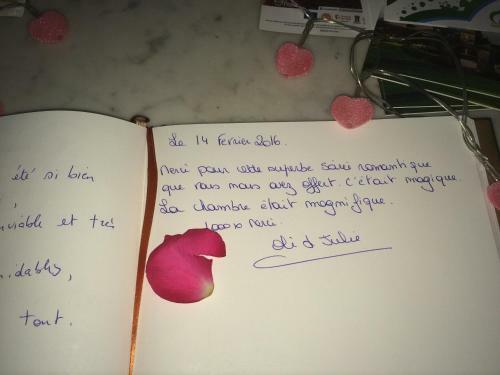 été si bien
,
et très
,
tout.
Le 14 Février 2016.
Merci pour cette superbe soirée romantique
que vous nous avez offert. C'était magique.
La chambre était magnifique.
1000x Merci.
Julie